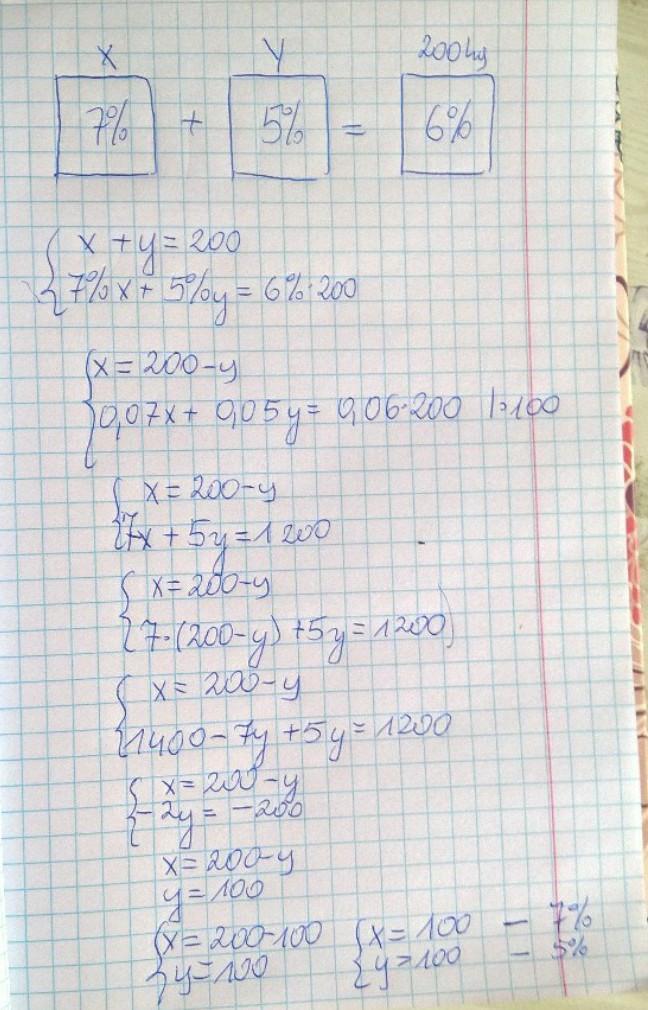 X Y 200 kg
7% + 5% = 6%
x + y = 200
7% x + 5% y = 6% · 200
x = 200 - y
0,07x + 0,05y = 0,06 · 200 |· 100
x = 200 - y
7x + 5y = 1200
x = 200 - y
7 · (200 - y) + 5y = 1200
x = 200 - y
1400 - 7y + 5y = 1200
x = 200 - y
- 2y = - 200
x = 200 - y
y = 100
x = 200 - 100 x = 100 - 7%
y = 100 y = 100 - 5%